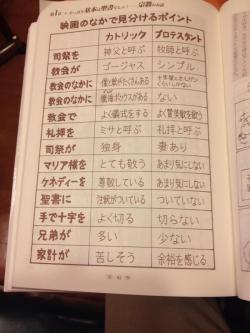 映画のなかで見分けるポイント
カトリック プロテスタント
司祭を 神父と呼ぶ 牧師と呼ぶ
教会が ゴージャス シンプル
教会のなかに 像と絵がたくさんある
教会のなかに 懺悔ボックスがある ない
教会で よく儀式をする よく賛美歌を歌う
礼拝を ミサと呼ぶ 礼拝と呼ぶ
司祭が 独身 妻あり
マリア様を とても敬う あまり気にしない
ケネディーを 尊敬している あまり気にしない
聖書に 注釈がついている ついていない
手で十字を よく切る 切らない
兄弟が 多い 少ない
家計が 苦しそう 余裕を感じる